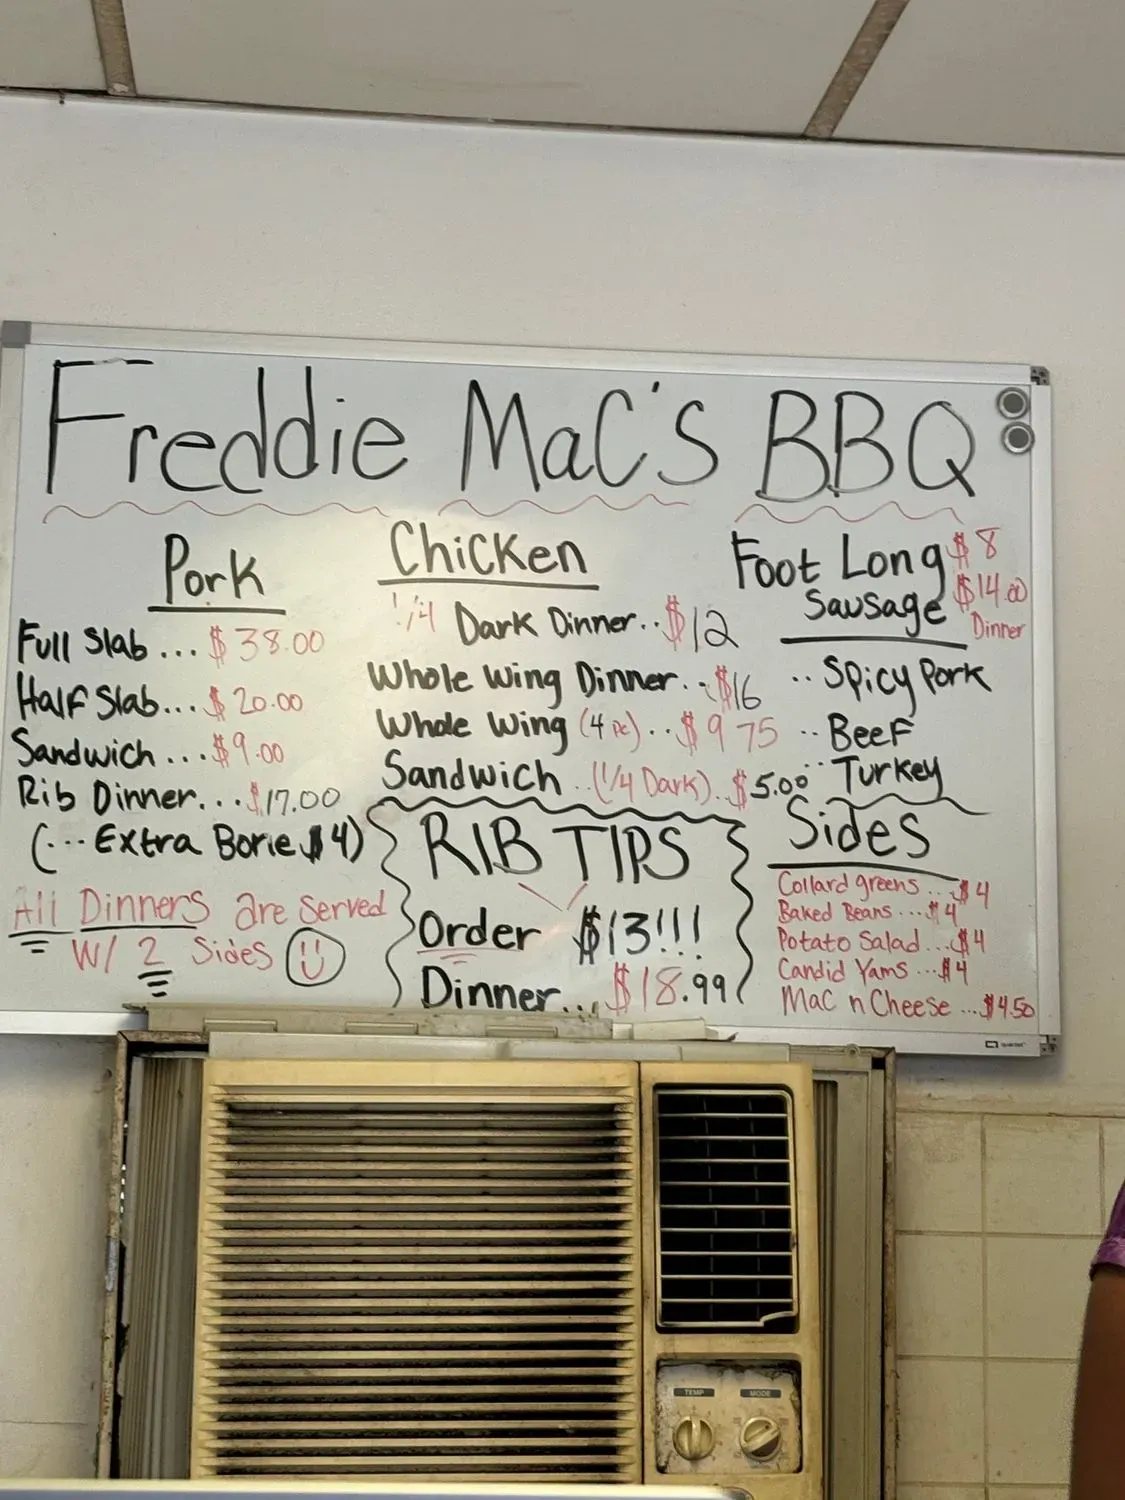 Freddie Mac's BBQ
Pork
Full Slab ... $38.00
Half Slab... $20.00
Sandwich ... $9.00
Rib Dinner... $17.00
(... Extra Bone $4)
All Dinners are served
W/ 2 Sides
Chicken
1/4 Dark Dinner.. $12
Whole Wing Dinner.. $16
Whole Wing (4 pc).. $9.75
Sandwich ..(1/4 Dark). $5.00
RIB TIPS
Order $13!!!
Dinner... $18.99
Foot Long $8
Sausage $14.00
Dinner
.. Spicy Pork
.. Beef
.. Turkey
Sides
Collard greens... $4
Baked Beans ... $4
Potato Salad... $4
Candid Yams ... $4
Mac n Cheese ... $4.50
quartet
TEMP MODE